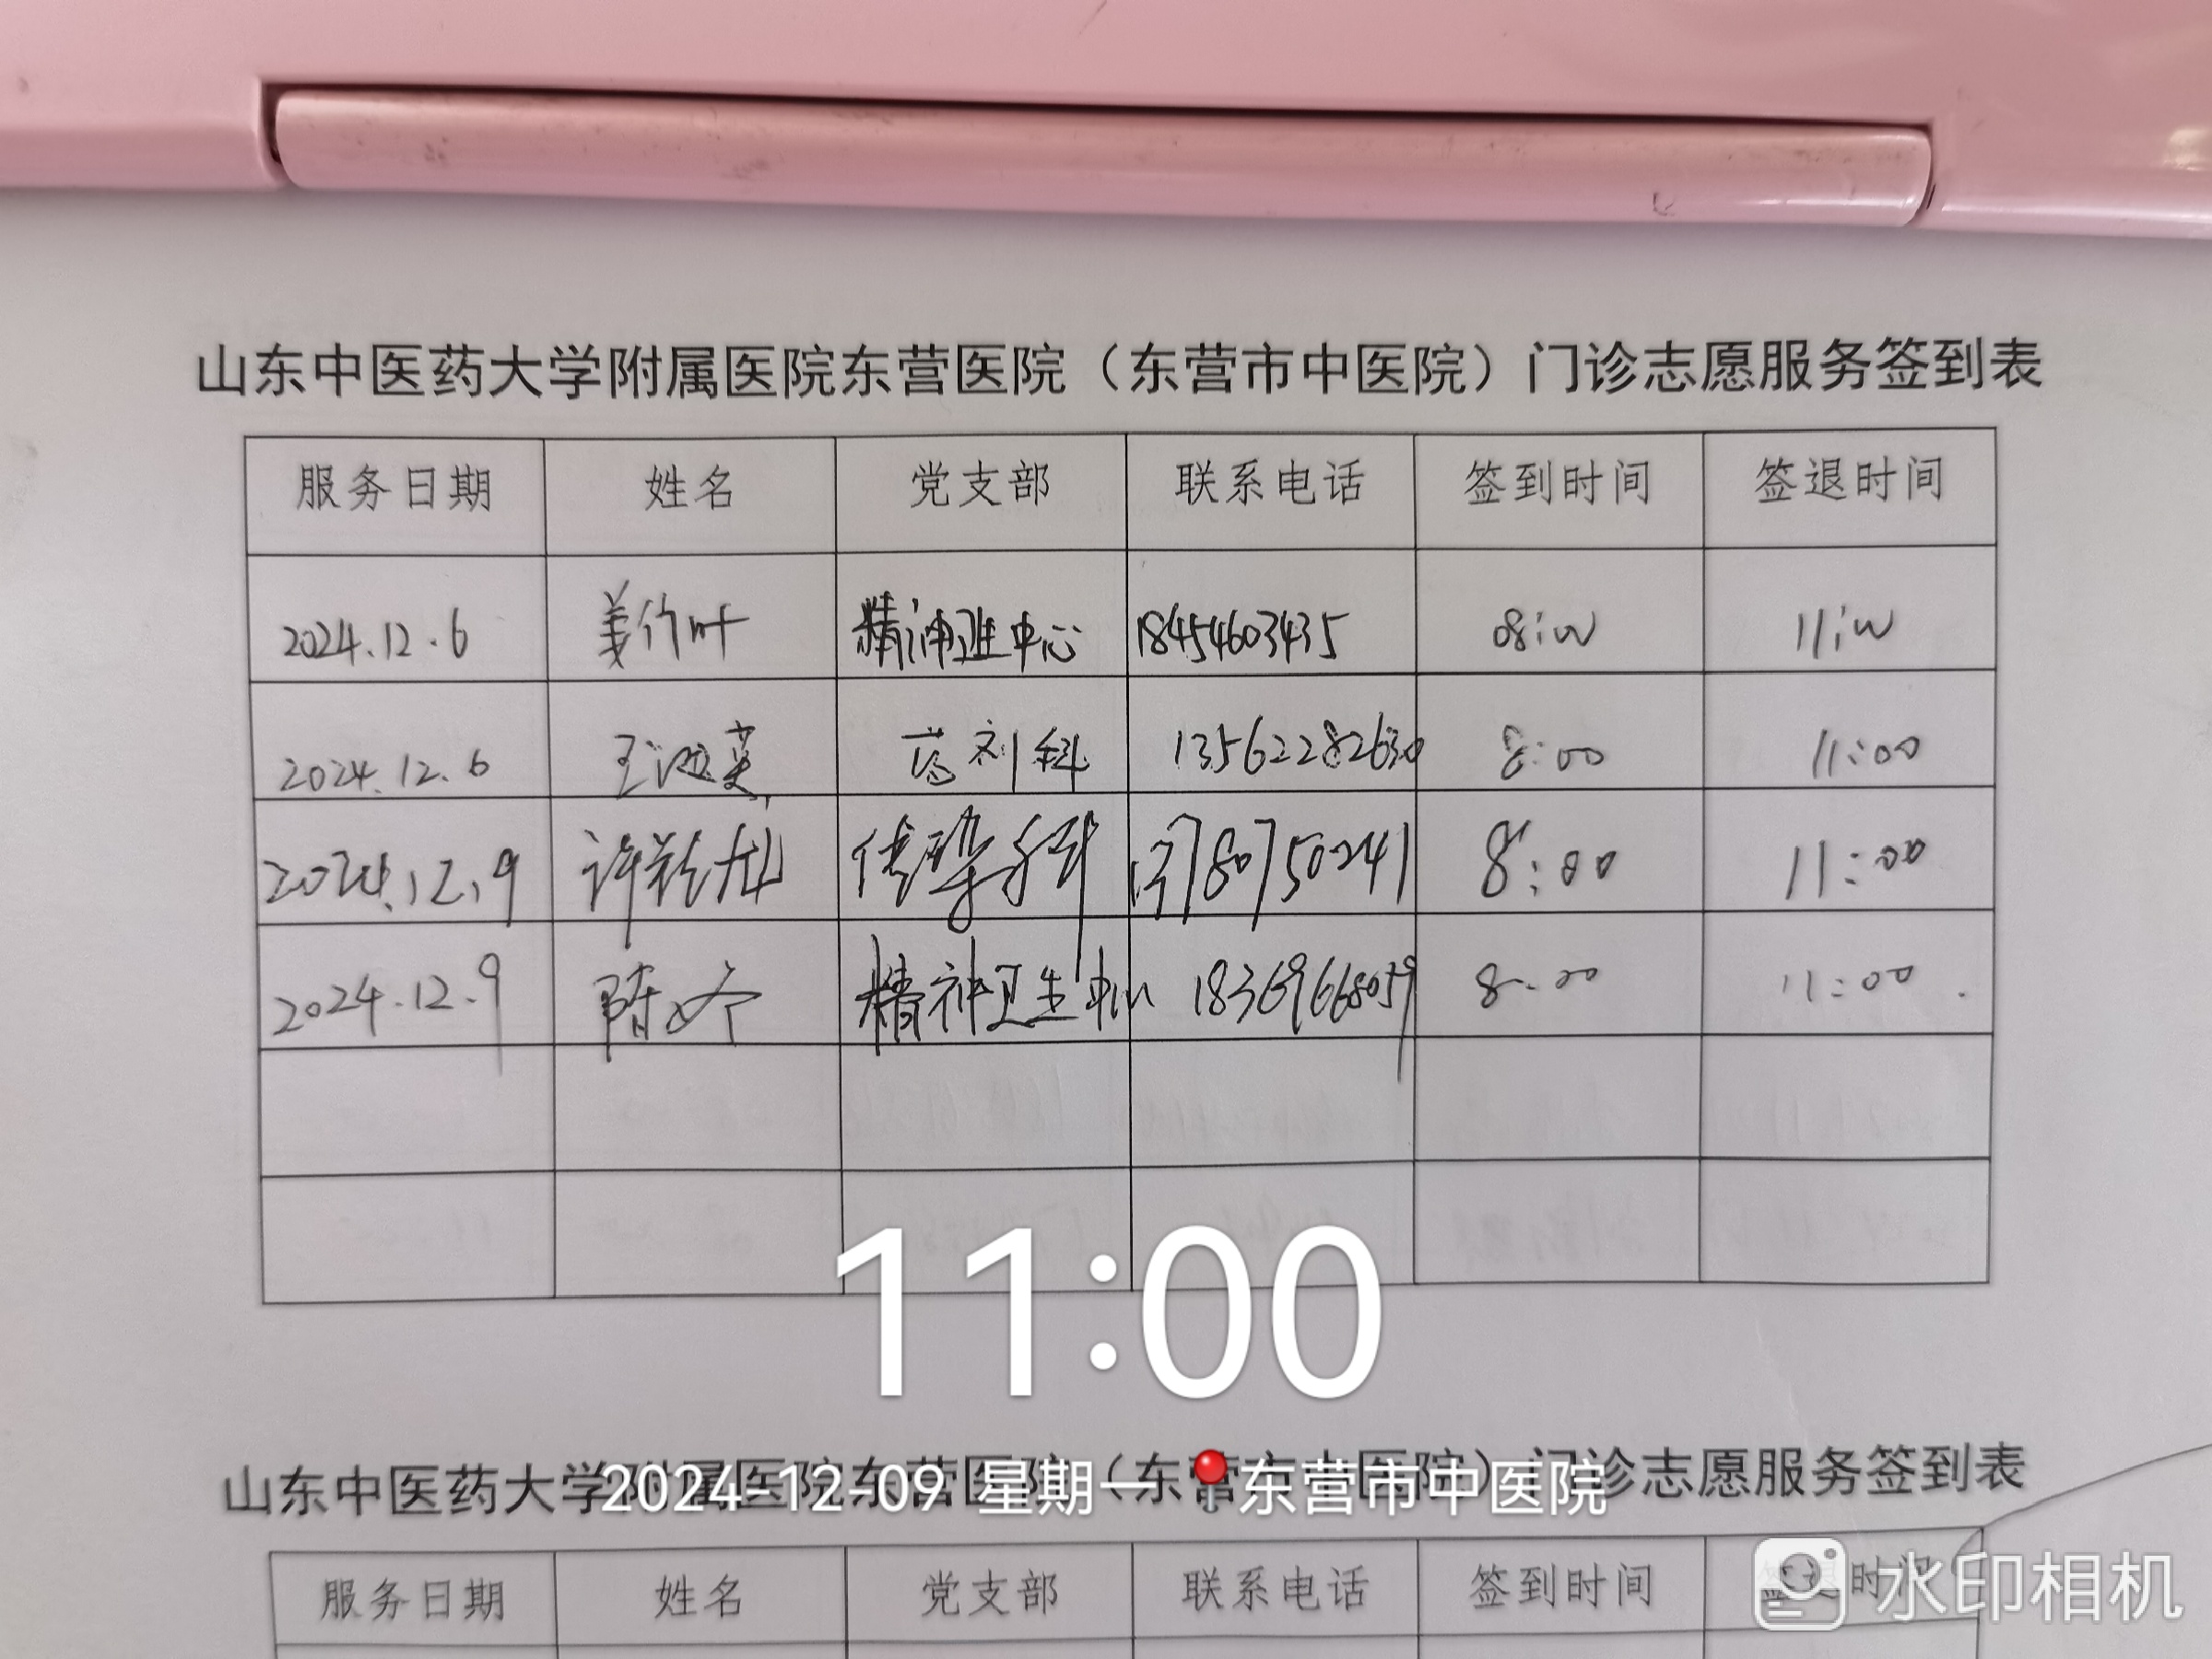 山东中医药大学附属医院东营医院（东营市中医院）门诊志愿服务签到表
服务日期 姓名 党支部 联系电话 签到时间 签退时间
2024.12.6 姜竹叶 精神卫生中心 18454603435 08:00 11:00
2024.12.6 王 英 药剂科 13562282630 8:00 11:00
2024.12.9 许 传染科 780750241 8:00 11:00
2024.12.9 陈 精神卫生中心 18369668059 8:00 11:00
11:00
山东中医药大学附属医院东营医院（东营市中医院）门诊志愿服务签到表
2024-12-09 星期一 东营市中医院
服务日期 姓名 党支部 联系电话 签到时间 签退时间
水印相机